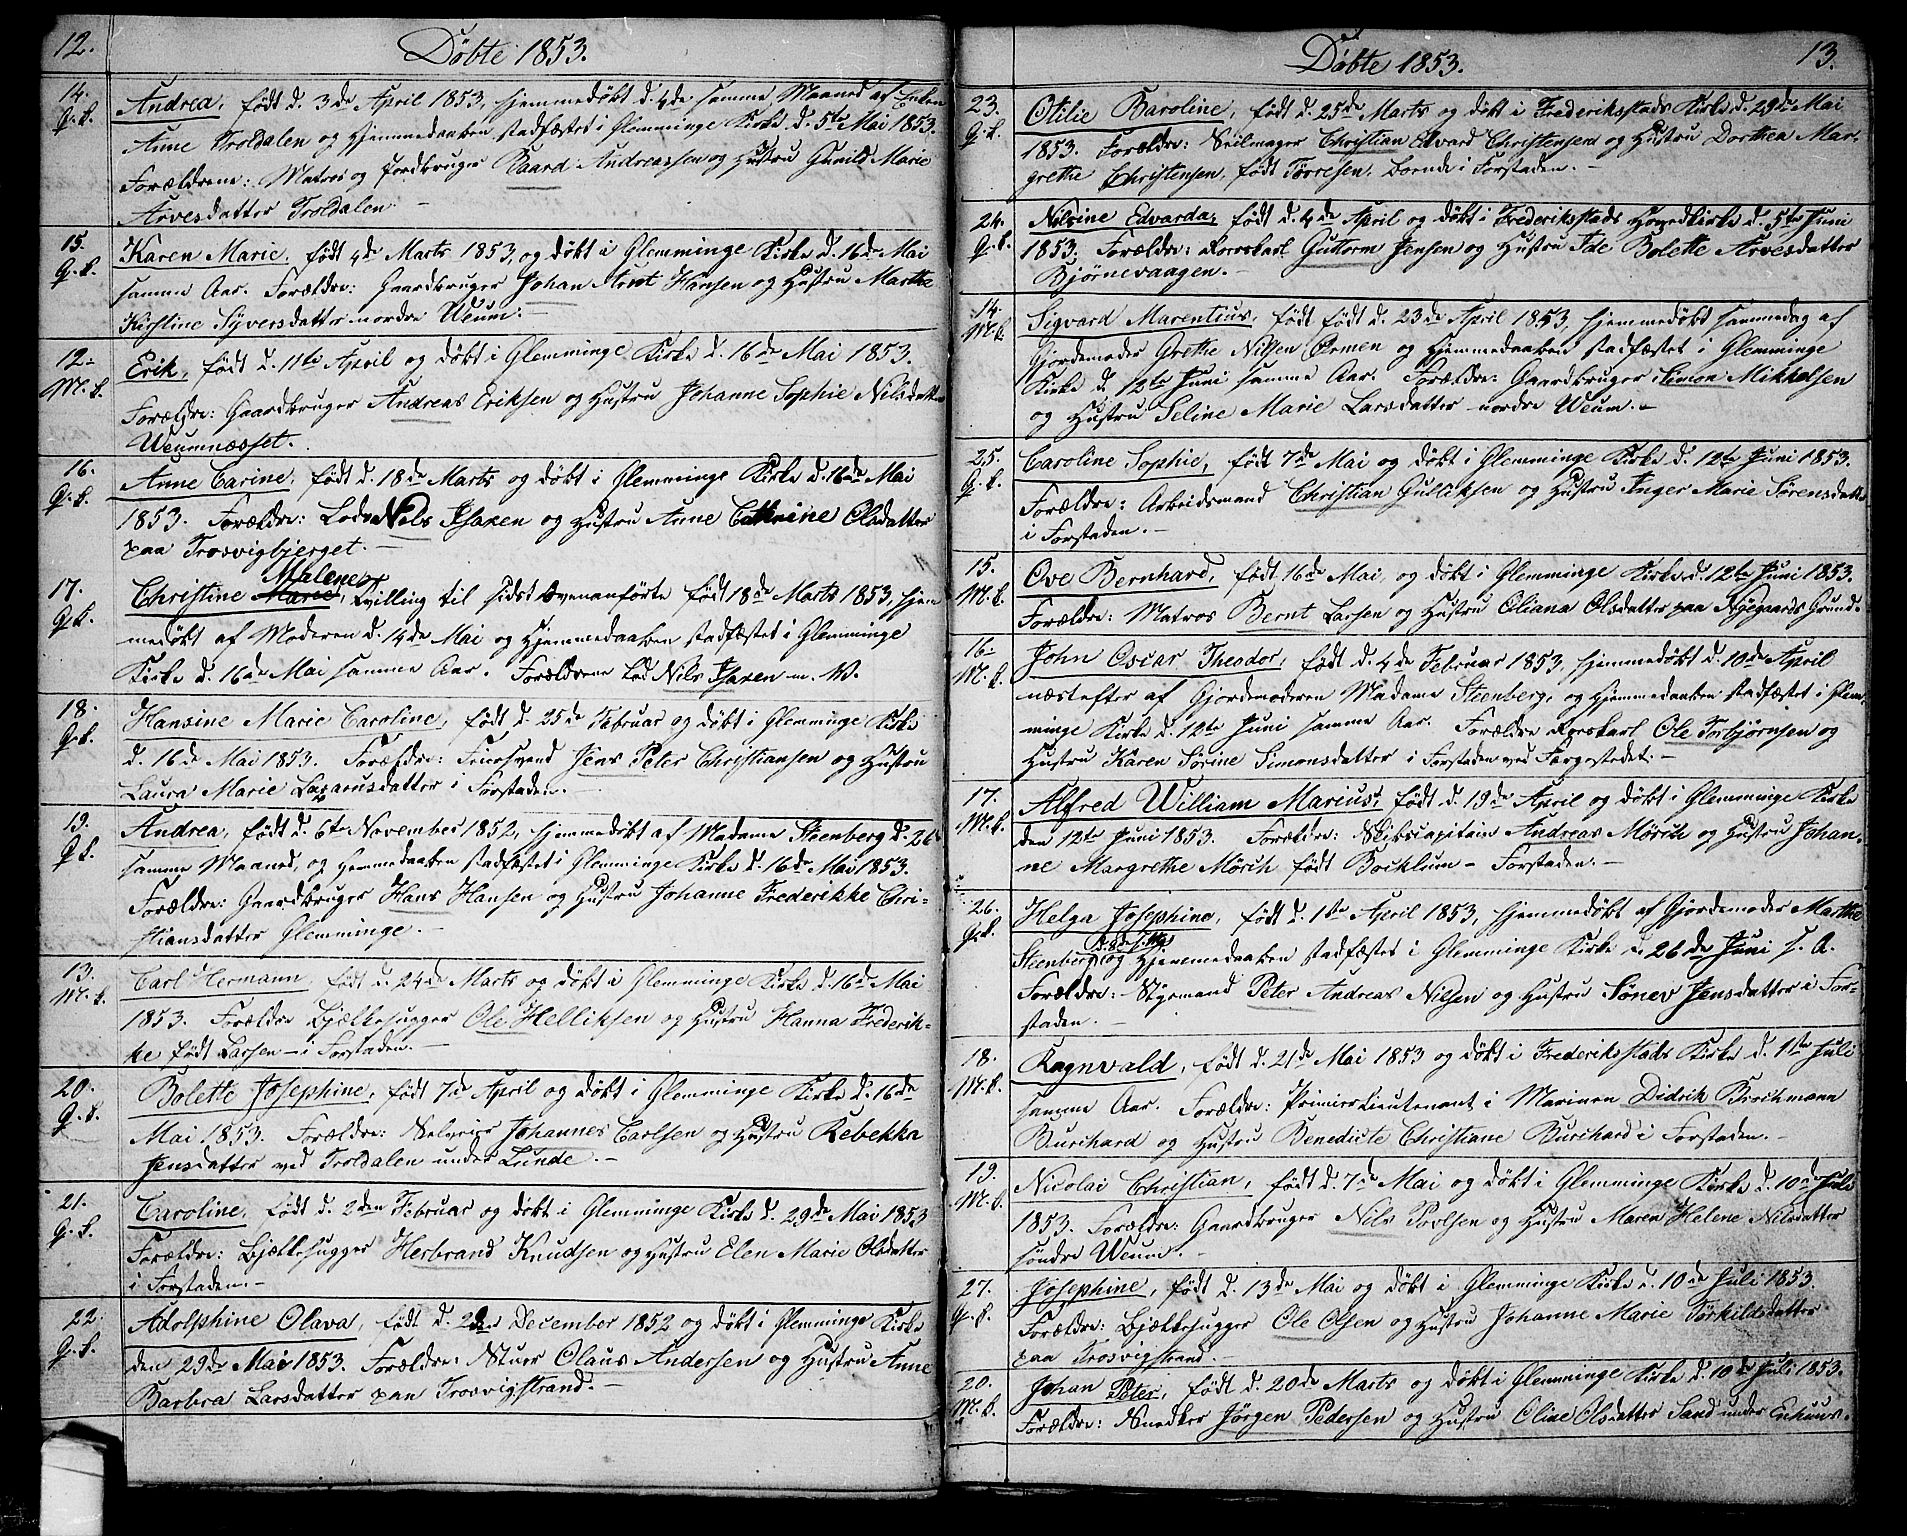 12.
Døbte 1853.
14. Andrea, født d. 3de April 1853, hjemmedøbt d. 4de samme Maaned af Enken
Q.k. Anne Troldalen og Hjemmedaaben stadfæstet i Glemminge Kirke d. 5te Mai 1853.
Forældrene: Matros og Jordbruger Baard Andreassen og Hustru Gunild Marie
Arvesdatter Troldalen. –
15. Karen Marie, født 4de Marts 1853, og døbt i Glemminge Kirke d. 16de Mai
Q.k. samme Aar. Forældre: Gaardbruger Johan Arnt Hansen og Hustru Marthe
Kirstine Syversdatter nordre Weum. –
12. Erik, født d. 11te April og døbt i Glemminge Kirke d. 16de Mai 1853.
M.k. Forældre: Gaardbruger Andreas Eriksen og Hustru Johanne Sophie Nilsdatter
Weumnæsset.
16. Anne Carine, født d. 18de Marts og døbt i Glemminge Kirke d. 16de Mai
Q.k. 1853. Forældre: Lods Nils Isaxen og Hustru Anne Cathrine Olsdatter
paa Trosvigbjerget. –
Malene
17. Christine Marie, Tvilling til sidst ovenanførte født 18de Marts 1853, hjem
Q.k. medøbt af Moderen d. 14de Mai og Hjemmedaaben stadfæstet i Glemminge
Kirke d. 16de Mai samme Aar. Forældrene Lods Nils Isaxen m. V.
18. Hansine Marie Caroline, født d. 25de Februar og døbt i Glemminge Kirke
Q.k. d. 16de Mai 1853. Forældre: Feiersvend Jens Peter Christiansen og Hustru
Laura Marie Lazarusdatter i Forstaden. –
19. Andrea, født d. 6te November 1852, hjemmedøbt af Madame Steenberg d. 26de
Q.k. samme Maaned, og Hjemmedaaben stadfæstet i Glemminge Kirke d. 16de Mai 1853.
Forældre: Gaardbruger Hans Hansen og Hustru Johanne Frederikke Chri-
stiansdatter Glemminge. –
13. Carl Hermann, født d. 24de Marts og døbt i Glemminge Kirke d. 16de Mai
M.k. 1853. Forældre Bjælkehugger Ole Helliksen og Hustru Hanna Frederik-
ke født Larsen – i Forstaden. –
20. Bolette Josephine, født 7de April og døbt i Glemminge Kirke d. 16de
Q.k. Mai 1853. Forældre: Selveier Johannes Carlsen og Hustru Rebekka
Jensdatter ved Troldalen under Lunde. –
21. Caroline, født d. 2den Februar og døbt i Glemminge Kirke d. 29de Mai 1853
Q.k. Forældre: Bjælkehugger Herbrand Knudsen og Hustru Elen Marie Olsdatter
i Forstaden. –
22. Adolphine Olava, født d. December 1852 og døbt i Glemminge Kirke
Q.k. den 29de Mai 1853. Forældre: Stuer Olaus Andersen og Hustru Anne
Barbra Larsdatter paa Trosvigstrand. –
13.
Døbte 1853.
23. Otilie Baroline, født d. 25de Marts og døbt i Frederikstads Kirke d. 29de Mai
Q.k. 1853. Forældre: Seilmager Christian Edvard Christensen og Hustru Dorthea Mar-
grethe Christensen, født Torresen, boende i Forstaden. –
24. Nilsine Edvarda, født d. 4de April og døbt i Frederikstads Hovedkirke d. 5te Juni
Q.k. 1853. Forældre: Rorskarl Guttorm Jensen og Hustru Ide Bolette Arvesdatter
Bjørnevaagen. –
14. Sigvard Marentius, født født d. 23de April 1853, hjemmedøbt sammedag af
M.k. Gjordemoder Grethe Nilsen Ørmen og Hjemmedaaben stadfæstet i Glemminge
Kirke d. 12te Juni samme Aar. Forældre: Gaardbruger Simon Mikkelsen
og Hustru Seline Marie Larsdatter nordre Weum. –
25. Caroline Sophie, født 7de Mai og døbt i Glemminge Kirke d. 12te Juni 1853.
Q.k. Forældre: Arbeidsmand Christian Gulliksen og Hustru Inger Marie Sørensdatter
i Forstaden. –
15. Ove Bernhard, født 16de Mai, og døbt i Glemminge Kirke d. 12te Juni 1853.
M.k. Forældre: Matros Bernt Larsen og Hustru Eliana Olsdatter paa Nygaards Grund.
16. John Oscar Theodor, født d. 4de Februar 1853, hjemmedøbt d. 10de April
M.k. næstefter af Gjordemoderen Madame Steenberg, og Hjemmedaaben stadfæstet i Glem-
minge Kirke d. 12te Juni samme Aar. Forældre Rorskarl Ole Torbjørnsen og
Hustru Karen Sørine Simonsdatter i Forstaden ved Færgestedet. –
17. Alfred William Marius, født d. 19de April og døbt i Glemminge Kirke
M.k. den 12te Juni 1853. Forældre: Skibscapitain Andreas Mørch og Hustru Johan-
ne Margrethe Mørch født Bocklum – Forstaden. –
26. Helga Josephine, født d. 1ste April 1853, hjemmedøbt af Gjordemoder Marthe
Q.k. Steenberg og Hjemmedaaben stadfæstet i Glemminge Kirke d. 26de Juni s. A.
Forældre: Styrmand Peter Andreas Nilsen og Hustru Sønev Jensdatter i For-
staden. –
18. Ragnvald, født d. 21de Mai 1853 og døbt i Frederikstads Kirke d. 11te Juli
M.k. samme Aar. Forældre: Premierlieutenant i Marinen Didrik Brochmann
Burchard og Hustru Benedicte Christiane Burchard i Forstaden. –
19. Nicolai Christian, født d. 7de Mai og døbt i Glemminge Kirke d. 10de Juli
M.k. 1853. Forældre: Gaardbruger Nils Poulsen og Hustru Maren Helene Nilsdatter
søndre Weum. –
27. Josephine, født d. 13de Mai og døbt i Glemminge Kirke d. 10de Juli 1853.
Q.k. Forældre: Bjælkehugger Ole Olsen og Hustru Johanne Marie Torkildsdatter
paa Trosvigstrand.
20. Johan Peter, født d. 20de Marts og døbt i Glemminge Kirke d. 10de Juli 1853.
M.k. Forældre: Snedker Jørgen Pedersen og Hustru Oline Olsdatter Sand under Enhuus.